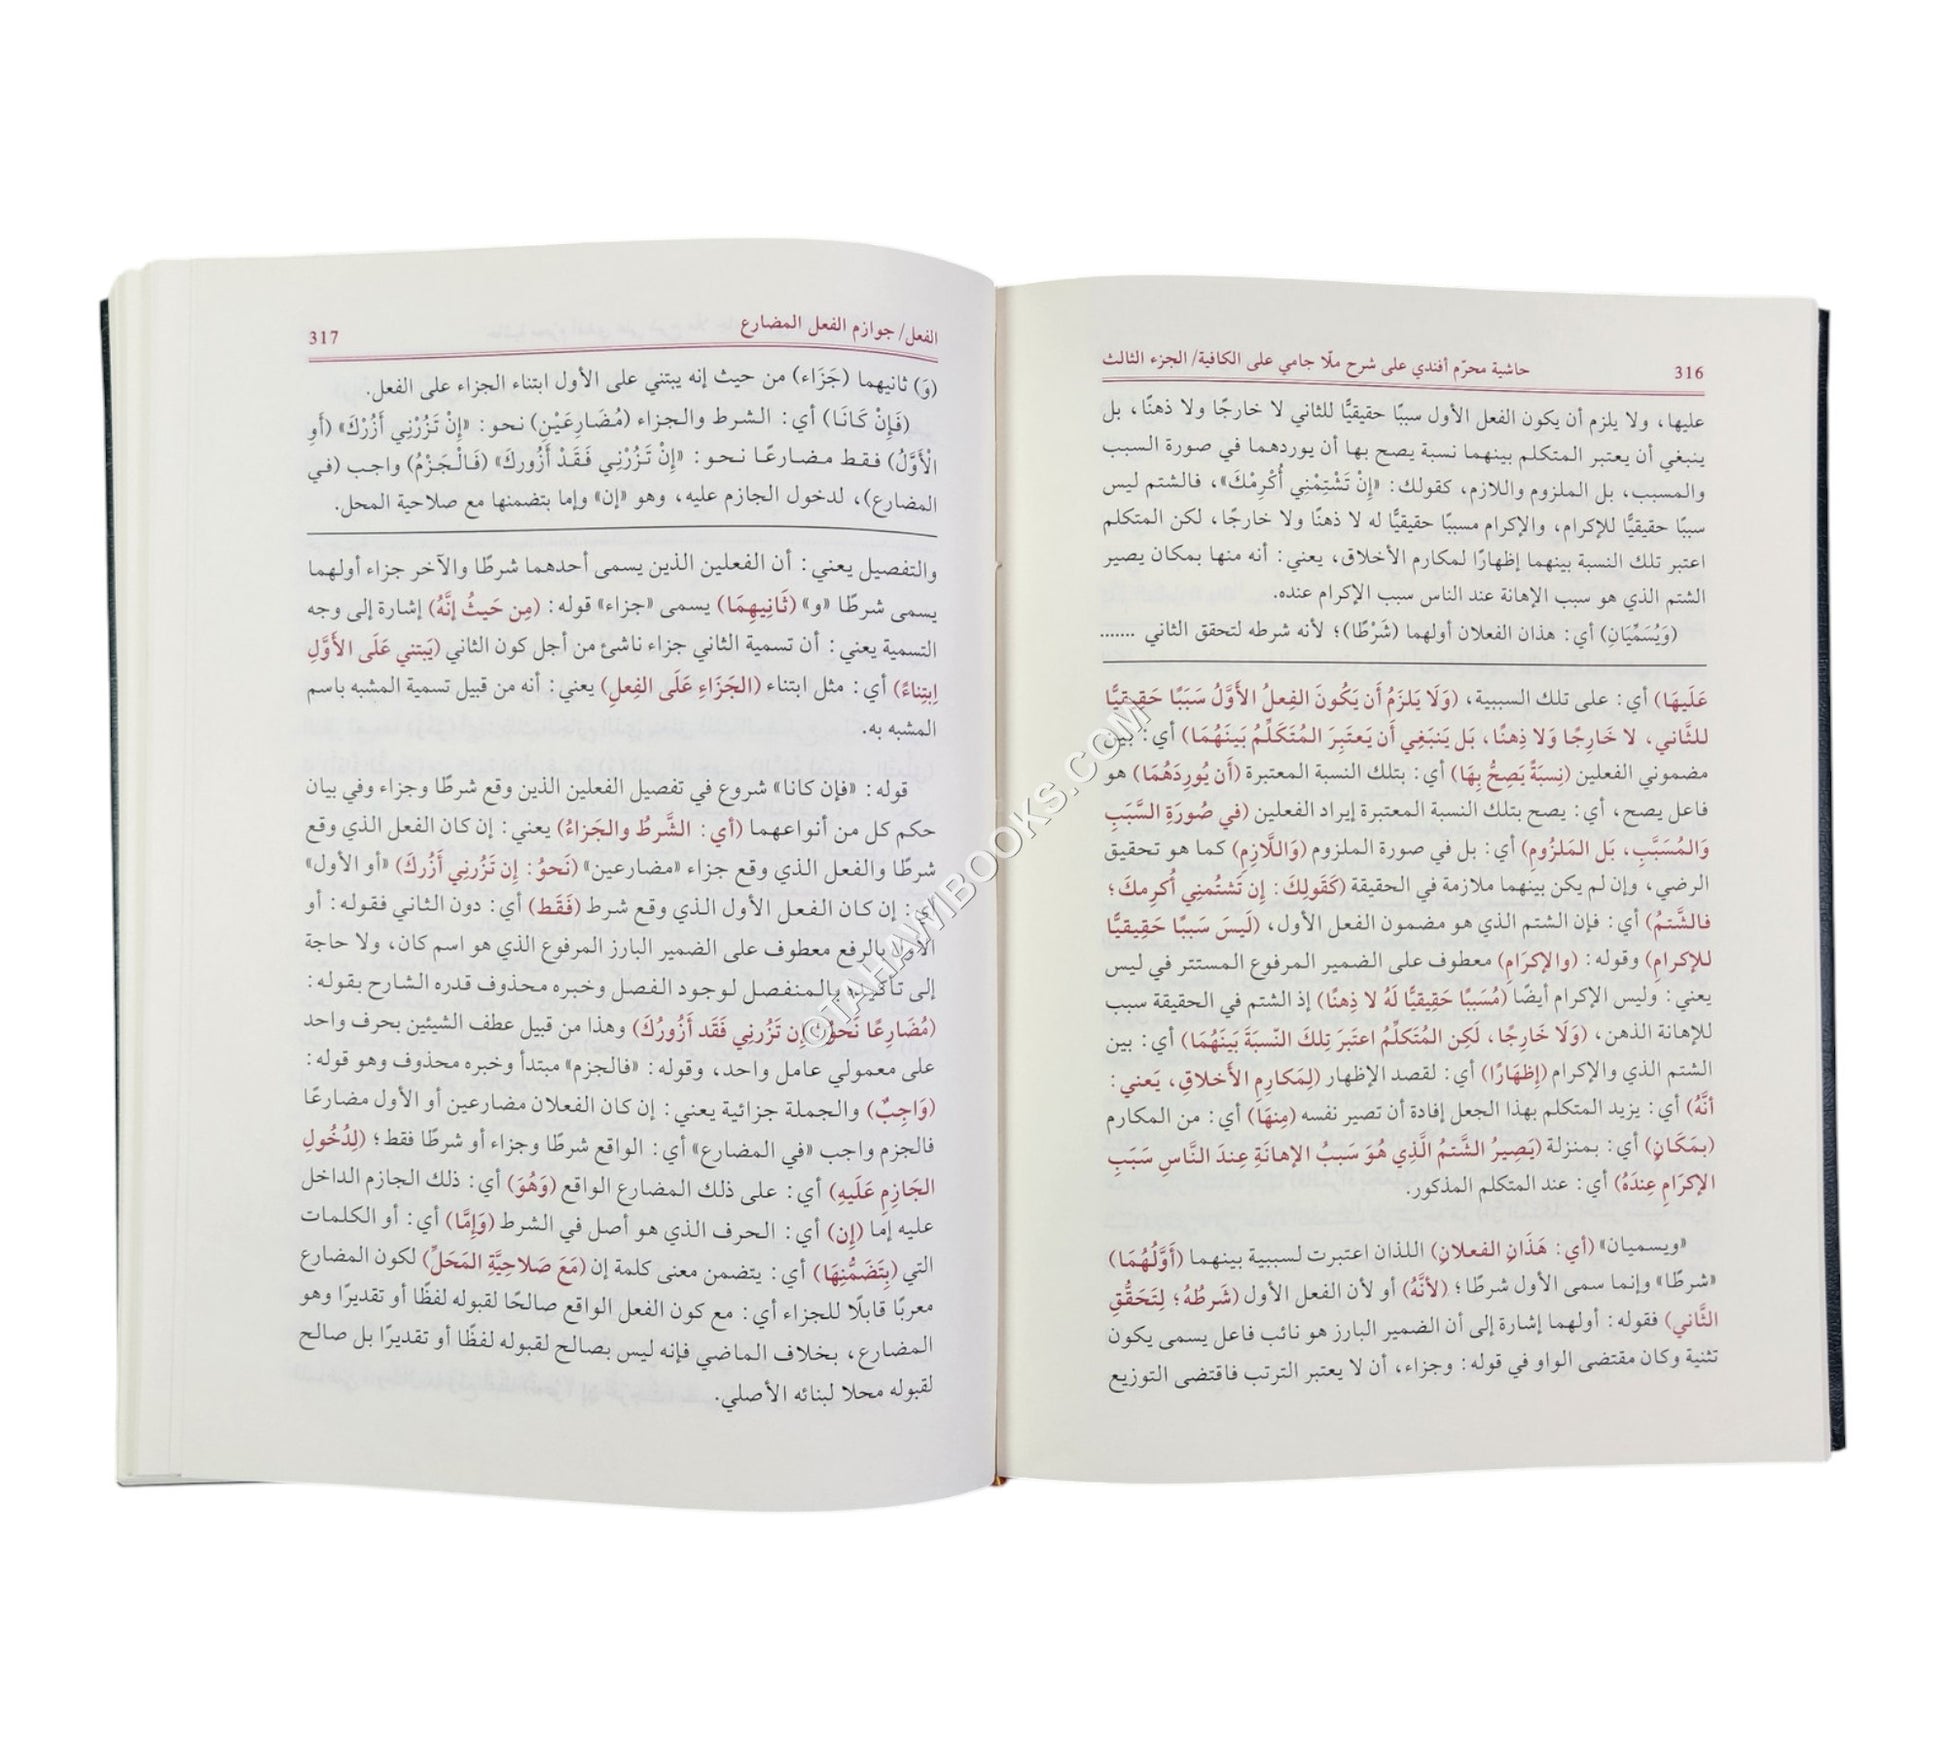 316 حاشية محرّم أفندي على شرح ملّا جامي على الكافية/ الجزء الثالث
عليها، ولا يلزم أن يكون الفعل الأول سببًا حقيقيًّا للثاني لا خارجًا ولا ذهنًا، بل
ينبغي أن يعتبر المتكلم بينهما نسبة يصح بها أن يوردهما في صورة السبب
والمسبب، بل الملزوم واللازم، كقولك: «إِنْ تَشْتِمْنِي أُكْرِمْكَ»، فالشتم ليس
سببًا حقيقيًّا للإكرام، والإكرام مسببًا حقيقيًّا له لا ذهنًا ولا خارجًا، لكن المتكلم
اعتبر تلك النسبة بينهما إظهارًا لمكارم الأخلاق، يعني: أنه منها بمكان يصير
الشتم الذي هو سبب الإهانة عند الناس سبب الإكرام عنده.
(وَيُسَمَّيَانِ) أي: هذان الفعلان أولهما (شَرْطًا)؛ لأنه شرطه لتحقق الثاني .......
عَلَيهَا) أي: على تلك السببية، (وَلَا يَلزَمُ أَن يَكُونَ الفِعلُ الأَوَّلُ سَبَبًا حَقِيقِيًّا
للثَّاني، لا خَارِجًا وَلا ذِهنًا، بَل يَنبَغِي أَن يَعتَبِرَ المُتَكَلِّمُ بَينَهُمَا) أي: بين
مضموني الفعلين (نِسبَةً يَصِحُّ بِهَا) أي: بتلك النسبة المعتبرة (أَن يُورِدَهُمَا) هو
فاعل يصح، أي: يصح بتلك النسبة المعتبرة إيراد الفعلين (في صُورَةِ السَّبَبِ
وَالمُسَبَّبِ، بَل المَلزُومِ) أي: بل في صورة الملزوم (وَاللَّازِمِ) كما هو تحقيق
الرضي، وإن لم يكن بينهما ملازمة في الحقيقة (كَقَولِكَ: إِن تَشتُمنِي أُكرِمكَ؛
فالشَّتمُ) أي: فإن الشتم الذي هو مضمون الفعل الأول، (لَيسَ سَببًا حَقِيقِيًّا
للإكرامِ) وقوله: (والإكرَامِ) معطوف على الضمير المرفوع المستتر في ليس
يعني: وليس الإكرام أيضًا (مُسَببًا حَقِيقِيًّا لَهُ لا ذِهنًا) إذ الشتم في الحقيقة سبب
للإهانة الذهن، (وَلَا خَارِجًا، لَكِن المُتَكلِّمُ اعتَبَرَ تِلكَ النّسبَةَ بَينَهُمَا) أي: بين
الشتم الذي والإكرام (إظهَارًا) أي: لقصد الإظهار (لِمَكارِمِ الأَخلاقِ، يَعني:
أنَّهُ) أي: يزيد المتكلم بهذا الجعل إفادة أن تصير نفسه (مِنهَا) أي: من المكارم
(بمَكَانٍ) أي: بمنزلة (يَصِيرُ الشَّتمُ الَّذِي هُوَ سَببُ الإهانَةِ عِندَ النَّاسِ سَبَبِ
الإكرَامِ عِندَهُ) أي: عند المتكلم المذكور.
«ويسميان» (أي: هَذَانِ الفعلانِ) اللذان اعتبرت لسببية بينهما (أَوَّلُهُمَا)
«شرطًا» وإنما سمى الأول شرطًا؛ (لأنَّهُ) أو لأن الفعل الأول (شَرطُهُ؛ لِتَحَقُّقِ
الثَّاني) فقوله: أولهما إشارة إلى أن الضمير البارز هو نائب فاعل يسمى يكون
تثنية وكان مقتضى الواو في قوله: وجزاء، أن لا يعتبر الترتب فاقتضى التوزيع
الفعل/ جوازم الفعل المضارع 317
(وَ) ثانيهما (جَزَاء) من حيث إنه يبتني على الأول ابتناء الجزاء على الفعل.
(فَإِنْ كَانَا) أي: الشرط والجزاء (مُضَارِعَيْنِ) نحو: «إِنْ تَزُرْنِي أَزُرْكَ» (أَوِ
الْأَوَّلُ) فقط مضارعًا نحو: «إِنْ تَزُرْنِي فَقَدْ أَزُورِكَ» (فَالْجَزْمُ) واجب (في
المضارع)، لدخول الجازم عليه، وهو «إن» وإما بتضمنها مع صلاحية المحل.
والتفصيل يعني: أن الفعلين الذين يسمى أحدهما شرطًا والآخر جزاء أولهما
يسمى شرطًا «و» (ثَانِيهِمَا) يسمى «جزاء» قوله: (مِن حَيثُ إنَّهُ) إشارة إلى وجه
التسمية يعني: أن تسمية الثاني جزاء ناشئ من أجل كون الثاني (يَبتني عَلَى الأَوَّلِ
اِبتِناءً) أي: مثل ابتناء (الجَزَاءِ عَلَى الفِعلِ) يعني: أنه من قبيل تسمية المشبه باسم
المشبه به.
قوله: «فإن كانا» شروع في تفصيل الفعلين الذين وقع شرطًا وجزاء وفي بيان
حكم كل من أنواعهما (أي: الشَّرطُ والجَزاءُ) يعني: إن كان الفعل الذي وقع
شرطًا والفعل الذي وقع جزاء «مضارعين» (نَحوُ: إِن تَزُرني أَزُركَ) «أو الأول»
إن كان الفعل الأول الذي وقع شرط (فَقَط) أي: دون الثاني فقوله: أو
الأول بالرفع معطوف على الضمير البارز المرفوع الذي هو اسم كان، ولا حاجة
إلى تأكيده بالمنفصل لوجود الفصل وخبره محذوف قدره الشارح بقوله:
(مُضَارِعًا نَحوُ: إِن تَزُرني فَقَد أَزُورُكَ) وهذا من قبيل عطف الشيئين بحرف واحد
على معمولي عامل واحد، وقوله: «فالجزم» مبتدأ وخبره محذوف وهو قوله:
(وَاجِبٌ) والجملة جزائية يعني: إن كان الفعلان مضارعين أو الأول مضارعًا
فالجزم واجب «في المضارع» أي: الواقع شرطًا وجزاء أو شرطًا فقط؛ (لِدُخُولِ
الجَازِمِ عَلَيهِ) أي: على ذلك المضارع الواقع (وَهُوَ) أي: ذلك الجازم الداخل
عليه إما (إِن) أي: الحرف الذي هو أصل في الشرط (وَإِمَّا) أي: أو الكلمات
التي (بِتَضَمُّنِهَا) أي: يتضمن معنى كلمة إن (مَعَ صَلَاحِيَّةِ المَحَلِّ) لكون المضارع
معربًا قابلًا للجزاء أي: مع كون الفعل الواقع صالحًا لقبوله لفظًا أو تقديرًا وهو
المضارع، بخلاف الماضي فإنه ليس بصالح لقبوله لفظًا أو تقديرًا بل صالح
لقبوله محلا لبنائه الأصلي.
©TAHAWIBOOKS.COM